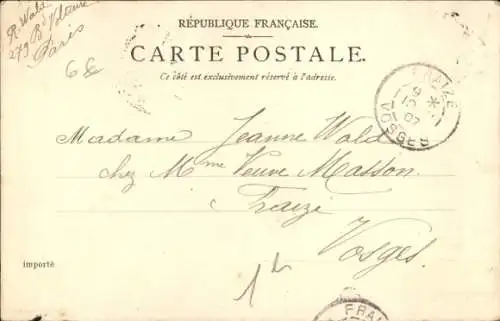 R. Wald
279 Bd Voltaire
Paris
68
RÉPUBLIQUE FRANÇAISE.
CARTE POSTALE.
Ce côté est exclusivement réservé à l'adresse.
FRAIZE
9
15
07
VOSGES
Madame Jeanne Wald
chez Mme Veuve Masson
Fraize
Vosges.
importé
FRAI